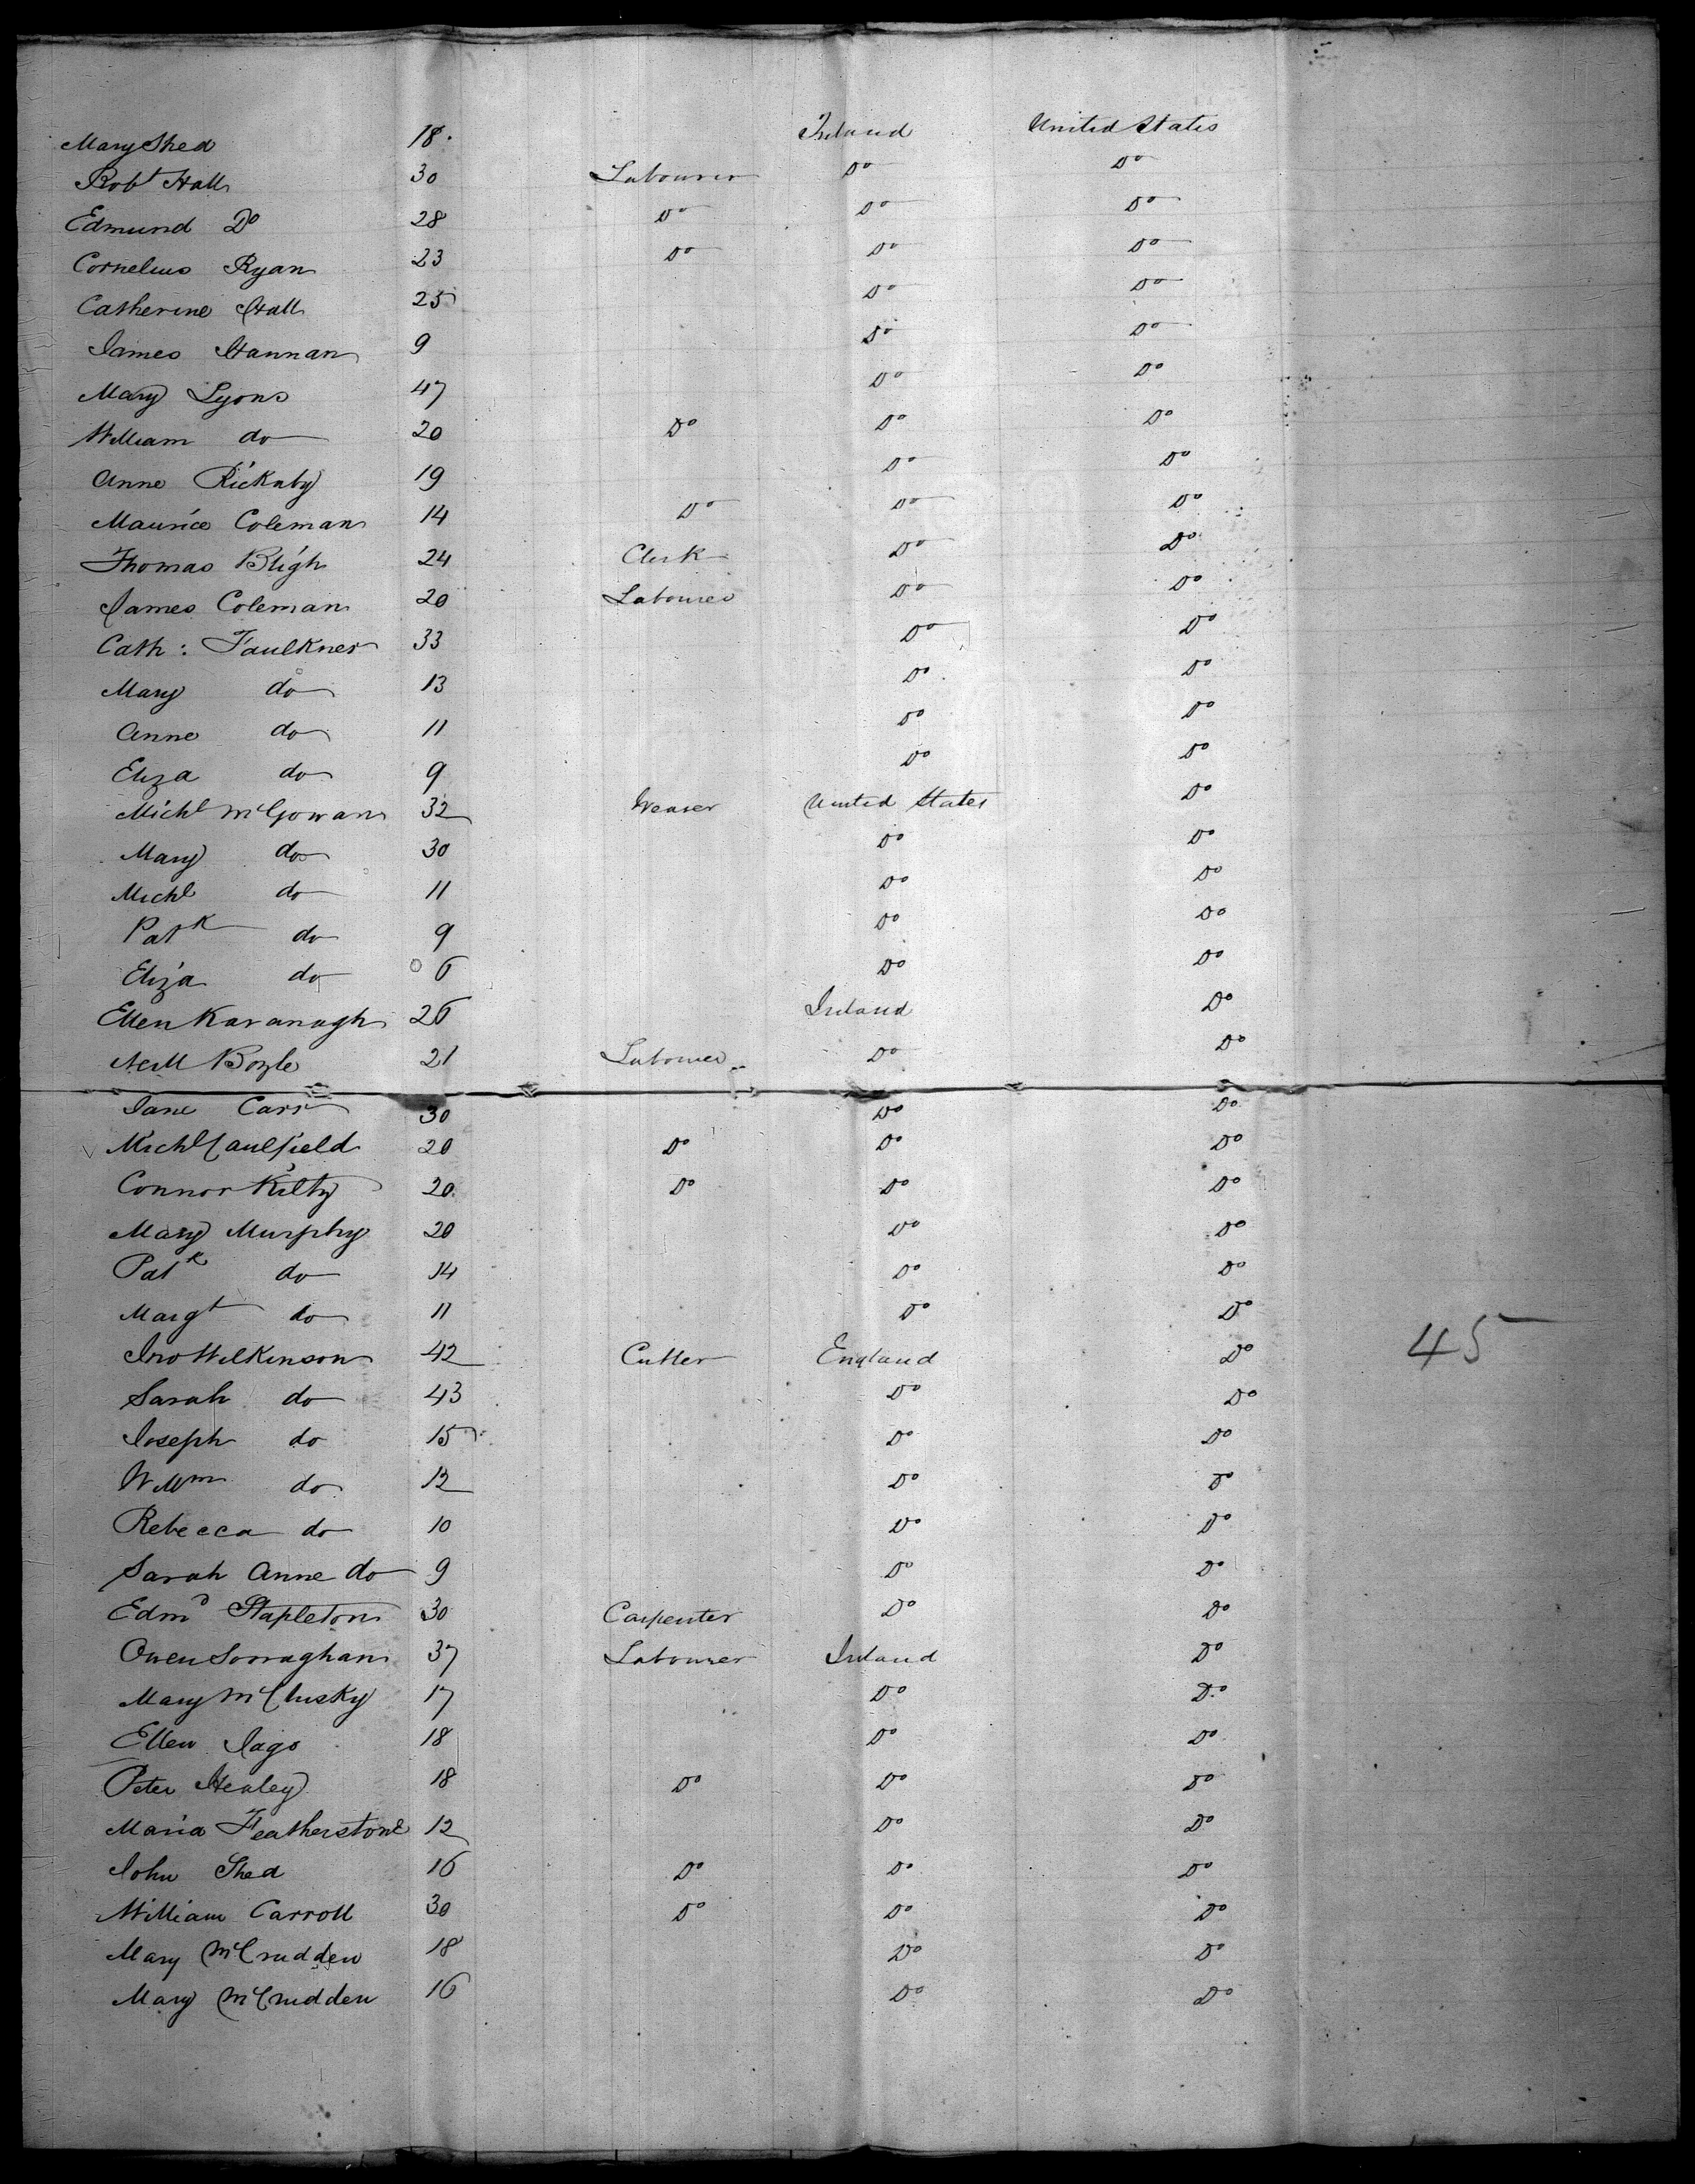 Mary Shed 18. Ireland United States
Robt Hall 30 Labourer Do Do
Edmund Do 28 Do Do Do
Cornelius Ryan 23 Do Do Do
Catherine Hall 25 Do Do
James Hannan 9 Do Do
Mary Lyons 47 Do Do
William do 20 Do Do Do
Anne Rickaby 19 Do Do
Maurice Coleman 14 Do Do Do
Thomas Bligh 24 Clerk Do Do
James Coleman 20 Labourer Do Do
Cath: Faulkner 33 Do Do
Mary do 13 Do Do
Anne do 11 Do Do
Eliza do 9 Do Do
Michl McGowan 32 Weaver United States Do
Mary do 30 Do Do
Michl do 11 Do Do
Patk do 9 Do Do
Eliza do 6 Do Do
Ellen Kavanagh 26 Ireland Do
Neill Boyle 21 Labourer Do Do
Jane Carr 30 Do Do
Michl Caulfield 20 Do Do Do
Connor Kilty 20 Do Do Do
Mary Murphy 20 Do Do
Patk do 14 Do Do
Margt do 11 Do Do
Jno Wilkinson 42 Cutler England Do 45
Sarah do 43 Do Do
Joseph do 15 Do Do
Willm do 12 Do Do
Rebecca do 10 Do Do
Sarah Anne do 9 Do Do
Edmd Stapleton 30 Carpenter Do Do
Owen Sorraghan 37 Labourer Ireland Do
Mary McClusky 17 Do Do
Ellen Jago 18 Do Do
Peter Healey 18 Do Do Do
Maria Featherstone 12 Do Do
John Shed 16 Do Do Do
William Carroll 30 Do Do Do
Mary McCrudden 18 Do Do
Mary McCrudden 16 Do Do